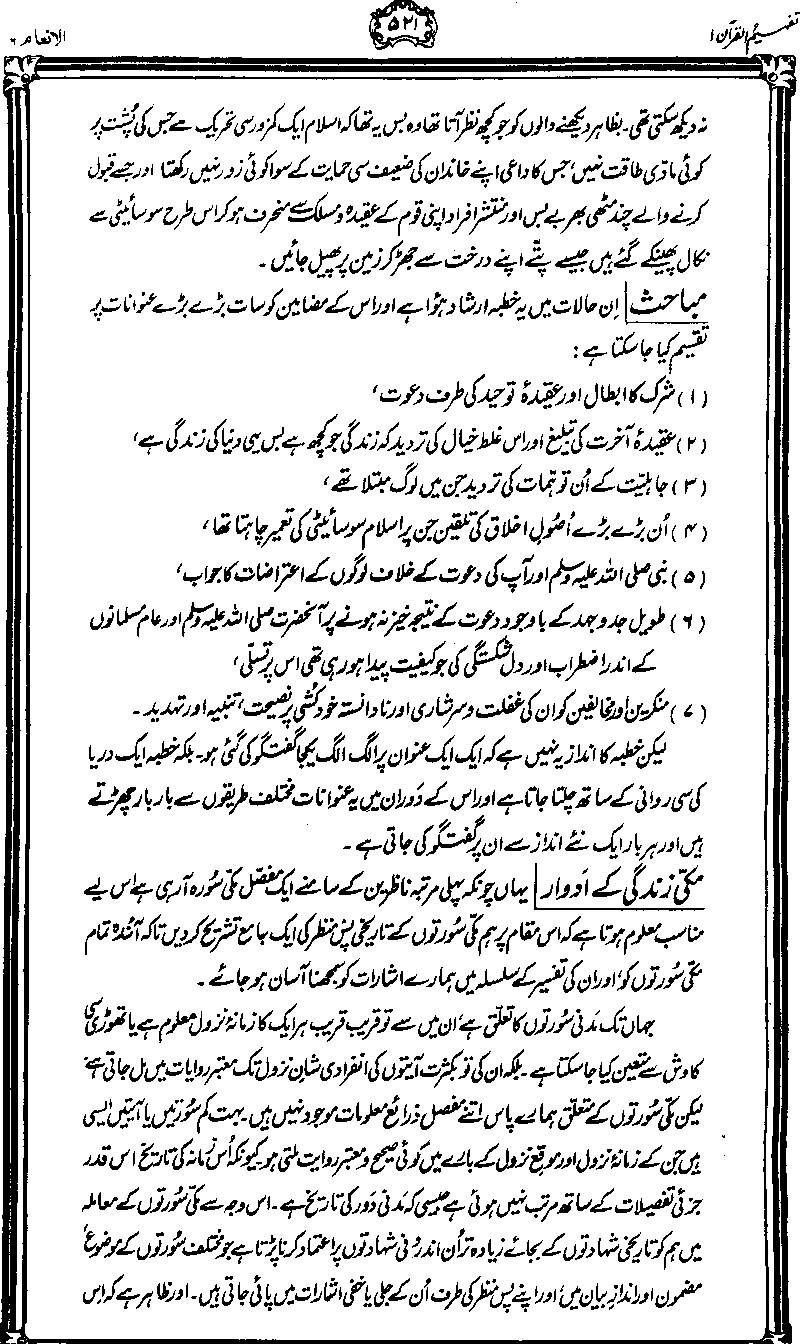 تفہیم القرآن ۱
۵۲۱
الانعام ۶
نہ دیکھ سکتی تھی۔ بظاہر دیکھنے والوں کو جو کچھ نظر آتا تھا وہ بس یہ تھا کہ اسلام ایک کمزور سی تحریک ہے جس کی پُشت پر
کوئی مادّی طاقت نہیں، جس کا داعی اپنے خاندان کی ضعیف سی حمایت کے سوا کوئی زور نہیں رکھتا اور جسے قبول
کرنے والے چند مٹھی بھر بے بس اور منتشر افراد اپنی قوم کے عقیدہ و مسلک سے منحرف ہو کر اس طرح سوسائیٹی سے
نکال پھینکے گئے ہیں جیسے پتّے اپنے درخت سے جھڑ کر زمین پر پھیل جائیں۔
مباحث اِن حالات میں یہ خطبہ ارشاد ہوٴا ہے اور اس کے مضامین کو سات بڑے بڑے عنوانات پر
تقسیم کیا جا سکتا ہے:
(۱) شرک کا ابطال اور عقیدۂ توحید کی طرف دعوت،
(۲) عقیدۂ آخرت کی تبلیغ اور اس غلط خیال کی تردید کہ زندگی جو کچھ ہے بس یہی دنیا کی زندگی ہے،
(۳) جاہلیّت کے اُن توہّمات کی تردید جن میں لوگ مبتلا تھے،
(۴) اُن بڑے بڑے اُصولِ اخلاق کی تلقین جن پر اسلام سوسائیٹی کی تعمیر چاہتا تھا،
(۵) نبی صلی اللہ علیہ وسلم اور آپ کی دعوت کے خلاف لوگوں کے اعتراضات کا جواب،
(۶) طویل جدوجہد کے باوجود دعوت کے نتیجہ خیز نہ ہونے پر آنحضرت صلی اللہ علیہ وسلم اور عام مسلمانوں
کے اندر اضطراب اور دل شکستگی کی جو کیفیت پیدا ہو رہی تھی اس پر تسلّی،
(۷) منکرین اور مخالفین کو ان کی غفلت و سرشاری اور نادانستہ خود کُشی پر نصیحت، تنبیہ اور تہدید۔
لیکن خطبہ کا انداز یہ نہیں ہے کہ ایک ایک عنوان پر الگ الگ یکجا گفتگو کی گئی ہو۔ بلکہ خطبہ ایک دریا
کی سی روانی کے ساتھ چلتا جاتا ہے اور اس کے دَوران میں یہ عنوانات مختلف طریقوں سے بار بار چھِڑتے
ہیں اور ہر بار ایک نئے انداز سے ان پر گفتگو کی جاتی ہے۔
مکّی زندگی کے اَدوار یہاں چونکہ پہلی مرتبہ ناظرین کے سامنے ایک مفصّل مکّی سُورہ آ رہی ہے اس لیے
مناسب معلوم ہوتا ہے کہ اس مقام پر ہم مکّی سُورتوں کے تاریخی پس منظر کی ایک جامع تشریح کر دیں تاکہ آئندہ تمام
مکّی سُورتوں کو، اور ان کی تفسیر کے سلسلہ میں ہمارے اشارات کو سمجھنا آسان ہو جائے۔
جہاں تک مَدنی سُورتوں کا تعلق ہے، اُن میں سے تو قریب قریب ہر ایک کا زمانۂ نزول معلوم ہے یا تھوڑی سی
کاوش سے متعین کیا جا سکتا ہے۔ بلکہ ان کی تو بکثرت آیتوں کی انفرادی شانِ نزول تک معتبر روایات میں مل جاتی ہے
لیکن مکّی سُورتوں کے متعلق ہمارے پاس اتنے مفصل ذرائع معلومات موجود نہیں ہیں۔ بہت کم سُورتیں یا آیتیں ایسی
ہیں جن کے زمانۂ نزول اور موقع نزول کے بارے میں کوئی صحیح و معتبر روایت ملتی ہو۔ کیونکہ اُس زمانہ کی تاریخ اس قدر
جزئی تفصیلات کے ساتھ مرتب نہیں ہوئی ہے جیسی کہ مَدنی دَور کی تاریخ ہے۔ اس وجہ سے مکّی سُورتوں کے معاملہ
میں ہم کو تاریخی شہادتوں کے بجائے زیادہ تر اُن اندرُونی شہادتوں پر اعتماد کرنا پڑتا ہے جو مختلف سُورتوں کے موضوع،
مضمون اور اندازِ بیان میں، اور اپنے پس منظر کی طرف اُن کے جلی یا خفی اشارات میں پائی جاتی ہیں۔ اور ظاہر ہے کہ اس